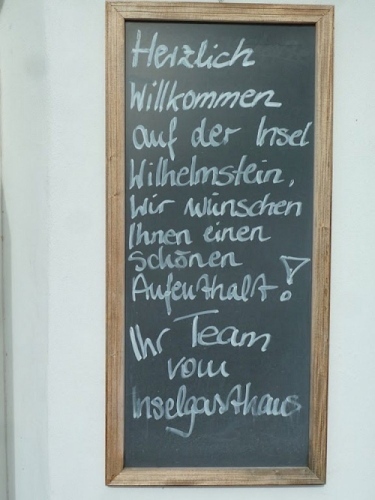 Herzlich
Willkommen
auf der Insel
Wilhelmstein.
Wir wünschen
Ihnen einen
schönen
Aufenthalt!
Ihr Team
vom
Inselgasthaus